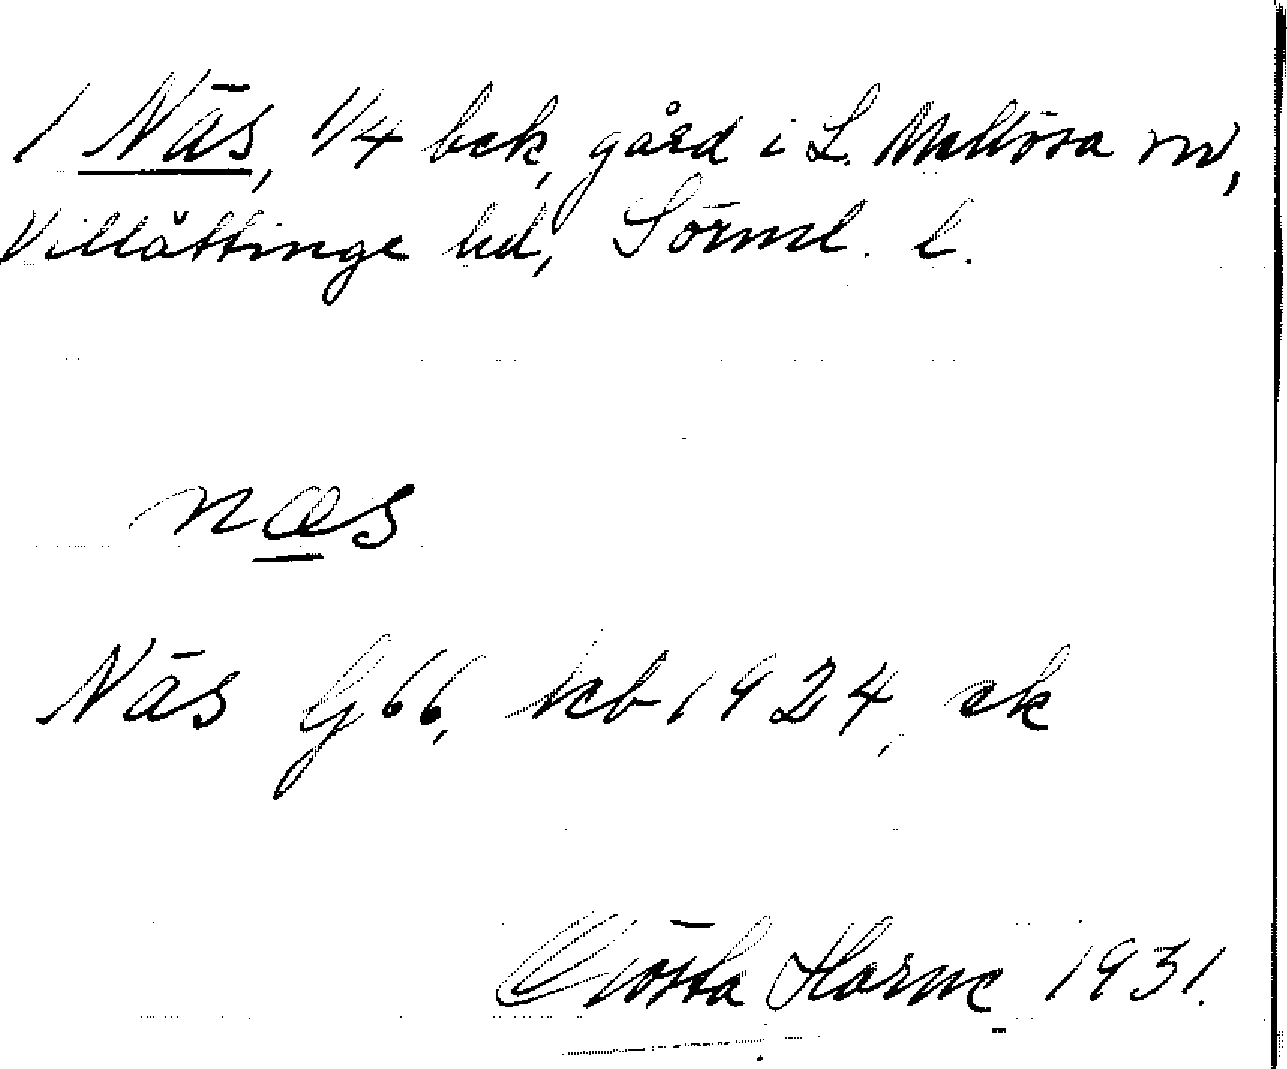 1 Näs, 1/4 bek, gård i L. Mellösa sn,
Villåttinge hd, Sörml. l.
næs
Näs G66, kb 1924, ek
Gösta Harne 1931.